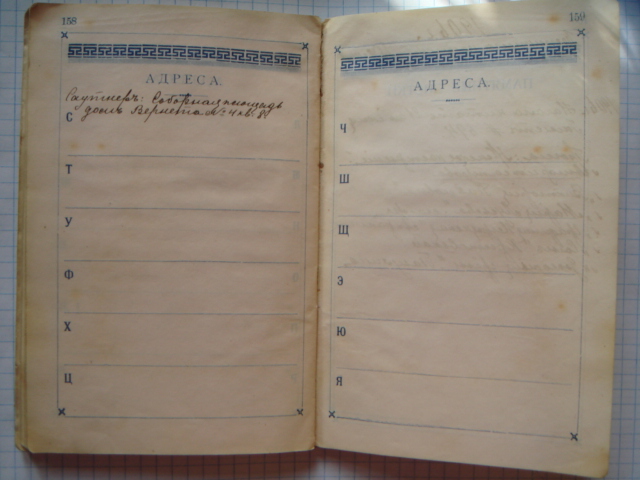 158
АДРЕСА.
Саутнеръ: Соборная площадь
домъ Вернета № 4 кв. 8
С
Т
У
Ф
Х
Ц
159
АДРЕСА.
Ч
Ш
Щ
Э
Ю
Я